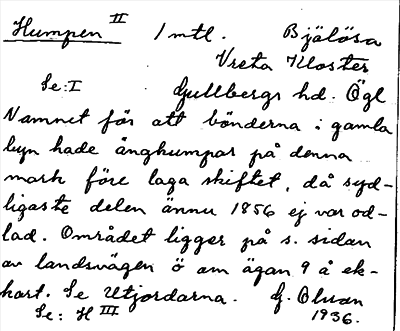 Humpen II 1 mtl. Bjälösa
Vreta Kloster
Se: I Gullbergs hd. Ögl
Namnet för att bönderna i gamla
byn hade ånghumpar på denna
mark före laga skiftet, då syd-
ligaste delen ännu 1856 ej var od-
lad. Området ligger på s. sidan
av landsvägen ö om ägan 9 å ek-
kart. Se Utjordarna. G. Olsson
Se: H III 1936.